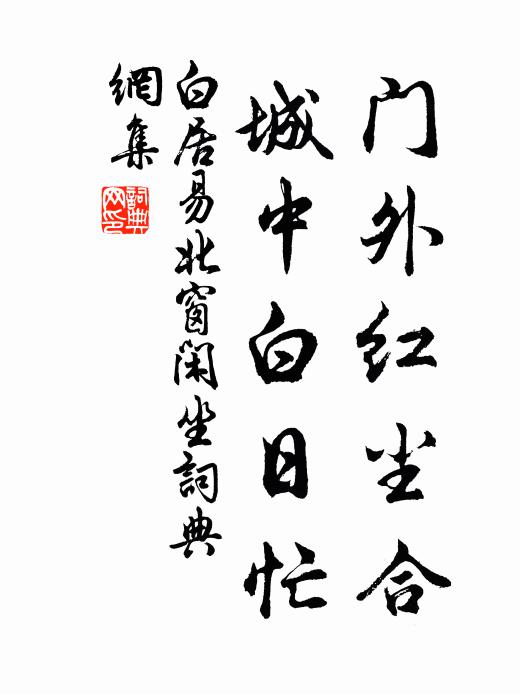 门外红尘合
城中白日忙
白居易北窗闲坐詞典
網集
詞典
网印